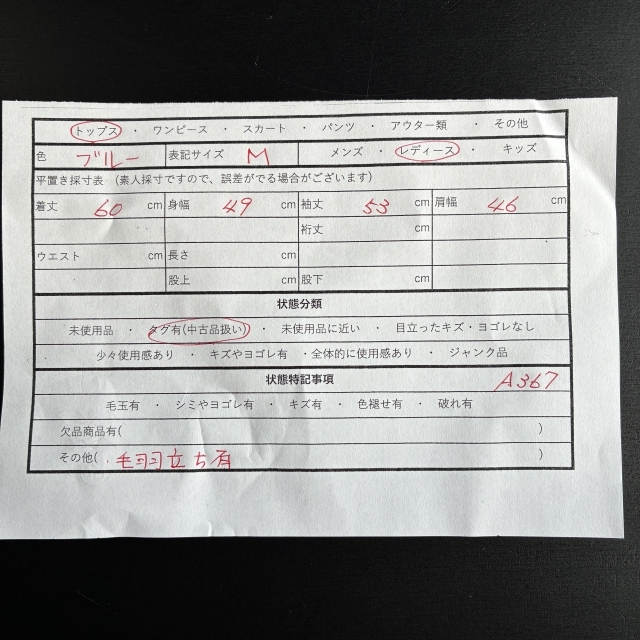 トップス ・ ワンピース ・ スカート ・ パンツ ・ アウター類 ・ その他
色 ブルー 表記サイズ M メンズ ・ レディース ・ キッズ
平置き採寸表 (素人採寸ですので、誤差がでる場合がございます)
着丈 60 cm 身幅 49 cm 袖丈 53 cm 肩幅 46 cm
裄丈 cm
ウエスト cm 長さ cm
股上 cm 股下 cm
状態分類
未使用品 ・ タグ有(中古品扱い) ・ 未使用品に近い ・ 目立ったキズ・ヨゴレなし
少々使用感あり ・ キズやヨゴレ有 ・全体的に使用感あり ・ ジャンク品
状態特記事項 A367
毛玉有 ・ シミやヨゴレ有 ・ キズ有 ・ 色褪せ有 ・ 破れ有
欠品商品有( )
その他( 毛羽立ち有 )